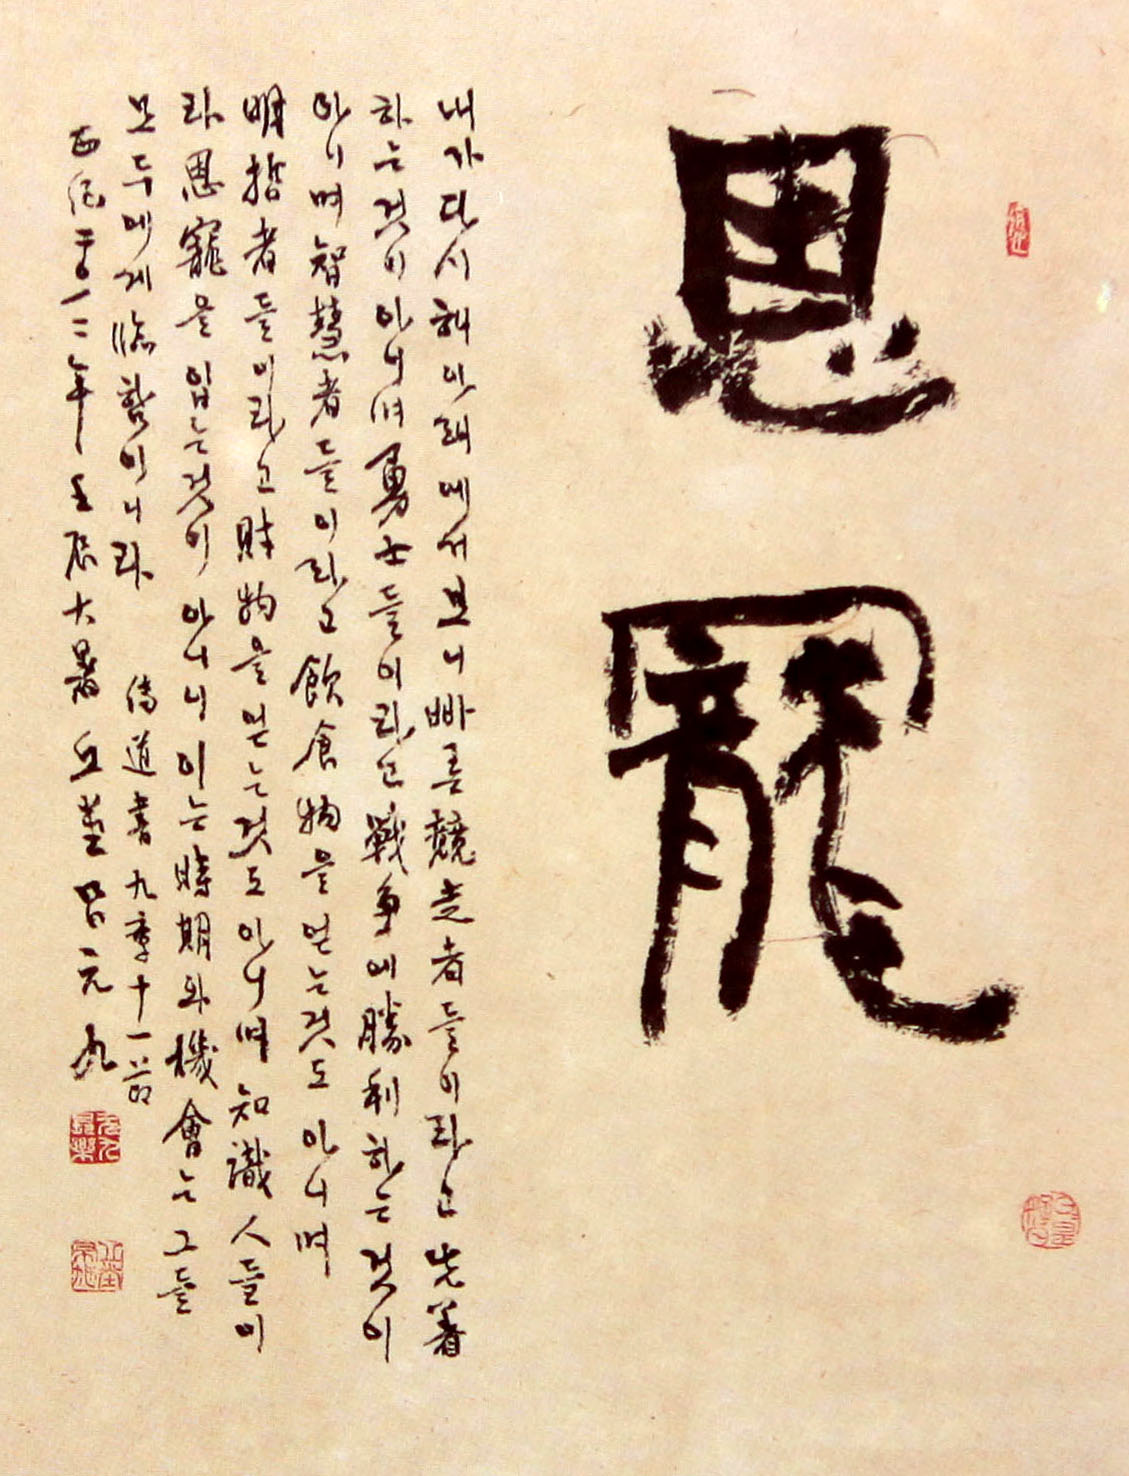 恩寵
내가 다시 해 아래에서 보니 빠른 競走者들이라고 先着
하는 것이 아니며 勇士들이라고 戰爭에 勝利하는 것이
아니며 智慧者들이라고 飮食物을 얻는 것도 아니며
明哲者들이라고 財物을 얻는 것도 아니며 知識人들이
라 恩寵을 입는 것이 아니니 이는 時期와 機會는 그들
모두에게 臨함이니라 傳道書九章十一節
西紀二〇一二年 壬辰大暑 丘堂呂元九